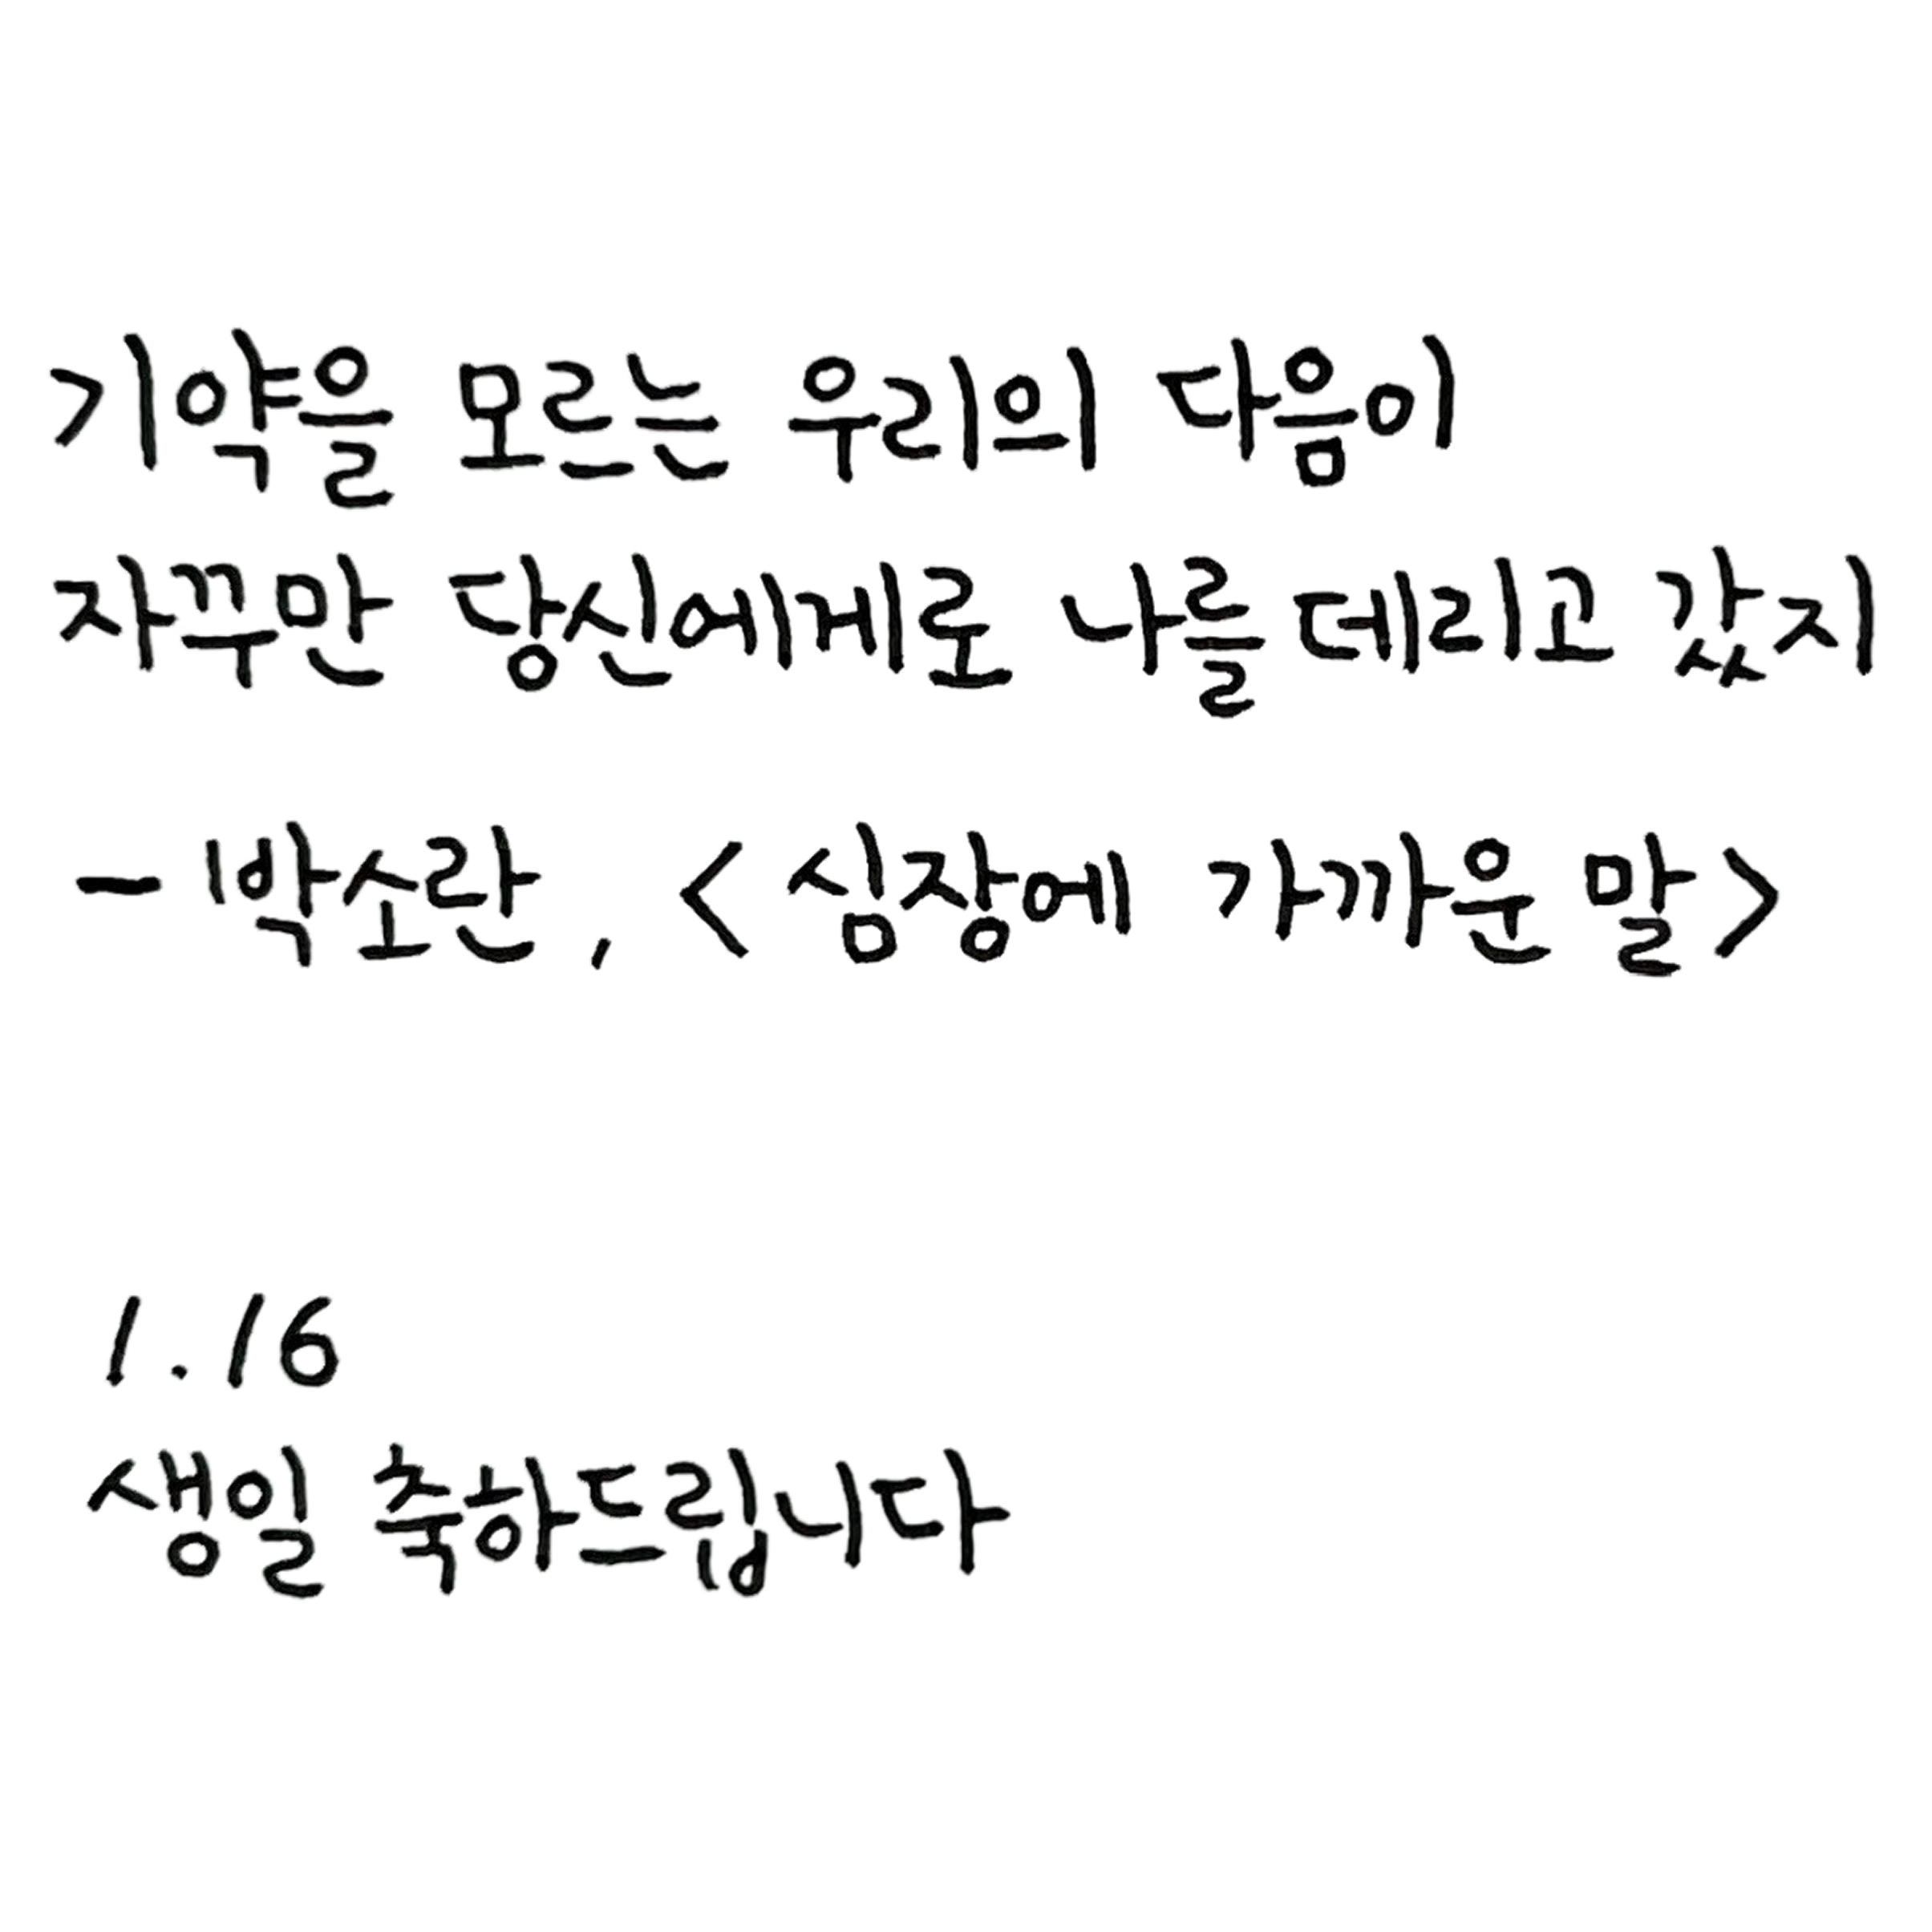 기약을 모르는 우리의 다음이
자꾸만 당신에게로 나를 데리고 갔지
- 박소란, <심장에 가까운 말>
1.16
생일 축하드립니다